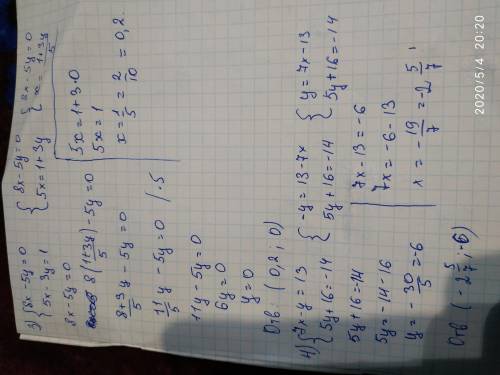 3) { 8x - 5y = 0 { 8x - 5y = 0 { 8x - 5y = 0
5x - 3y = 1 5x = 1 + 3y x = (1+3y)/5
8x - 5y = 0
8 (1+3y)/5 - 5y = 0
(8+3y)/5 - 5y = 0
11/5 y - 5y = 0 / ·5
11y - 5y = 0
6y = 0
y = 0
5x = 1 + 3·0
5x = 1
x = 1/5 = 2/10 = 0,2.
Отв: (0,2; 0)
4) { 7x - y = 13 { -y = 13 - 7x { y = 7x - 13
5y + 16 = -14 5y + 16 = -14 5y + 16 = -14
5y + 16 = -14
5y = -14 - 16
y = -30/5 = -6
7x - 13 = -6
7x = -6 - 13
x = -19/7 = -2 5/7
Отв (-2 5/7; -6)
2020/5/4 20:20